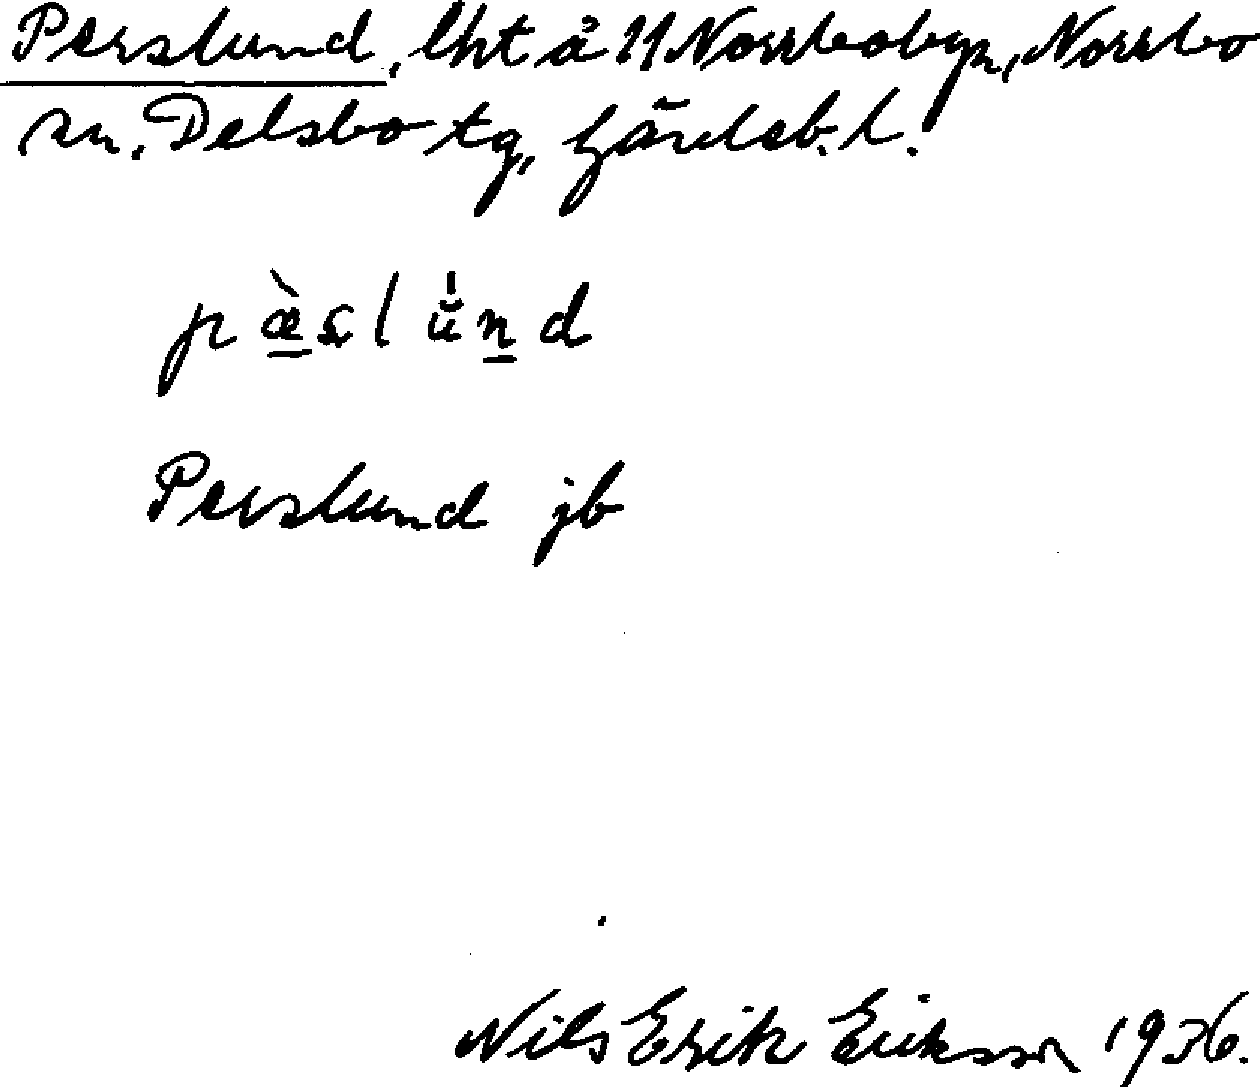 Perslund, lht å 11 Norrbobyn, Norrbo
sn. Delsbo tg, Gävleb. l.
Perslund jb
Nils Erik Eriksson 1936.